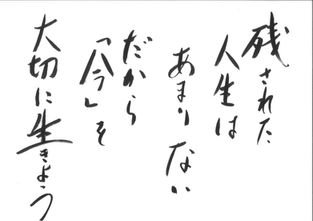 残された
人生は
あまりない
だから
「今」を
大切に生きよう